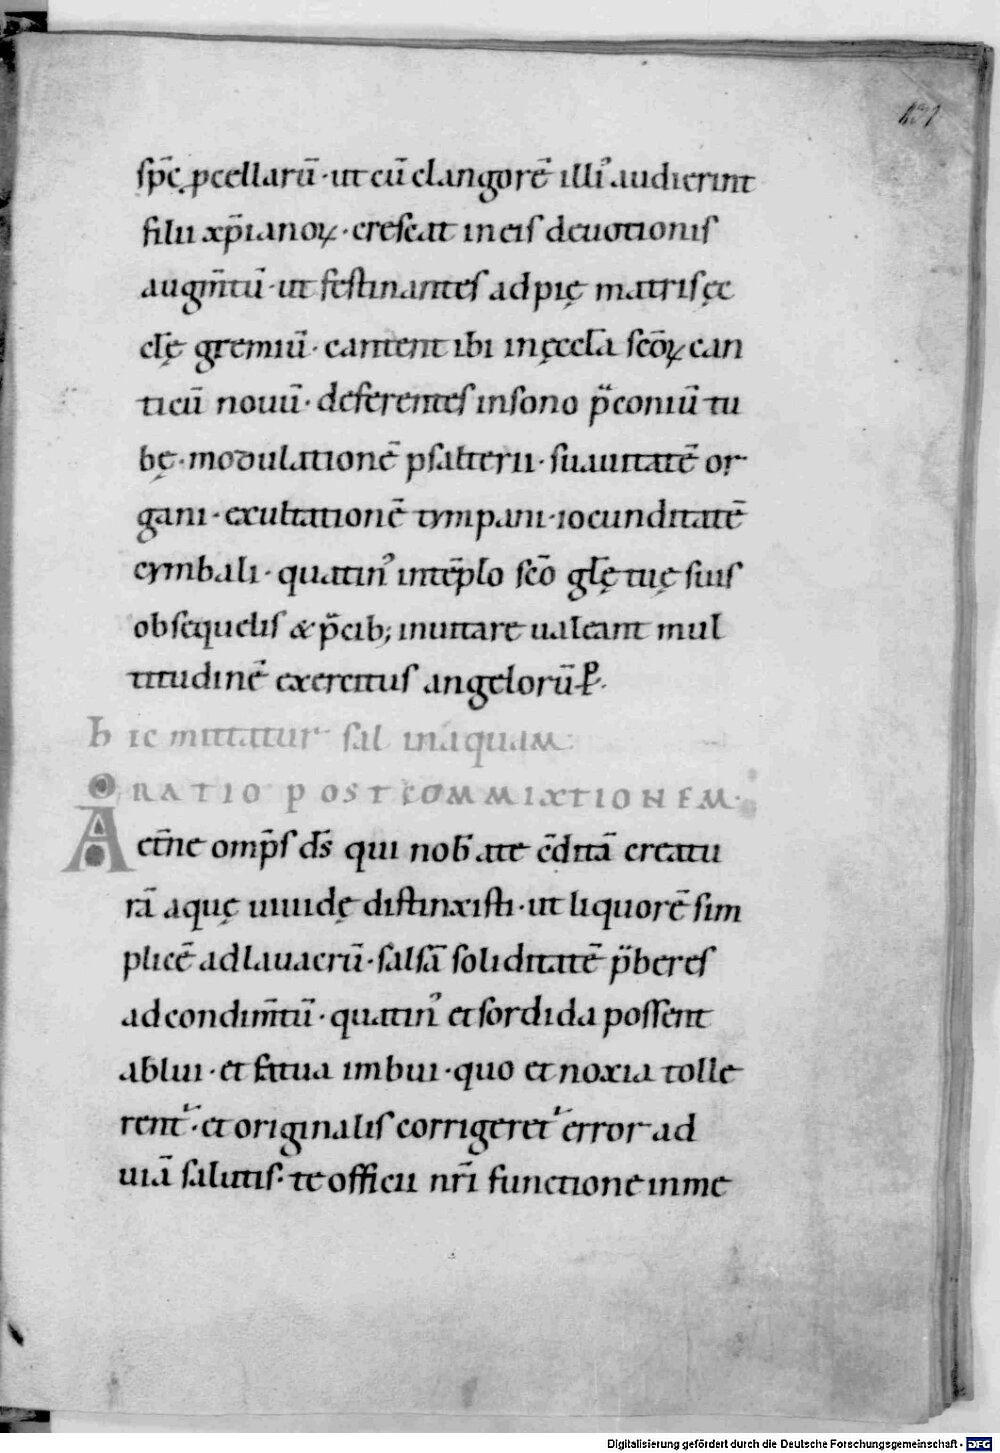 sp̄c ꝓcellarū · ut cū clangorē illiꝰ audierint
filii xp̄ianoꝝ · crescat in eis deuotionis
augm̄tū · ut festinantes ad pię matris ęc
cl̄ę gremiū · cantent ibi in ęccl̄a sc̄oꝝ can
ticū nouū · deferentes in sono p̄coniū tu
bę · modulationē psalterii · suauitatē or
gani · exultationē tympani · iocunditatē
cymbali · quatinꝰ in tēplo sc̄o gl̄ę tuę suis
obsequelis & p̄cib; inuitare ualeant mul
titudinē exercitus angelorū · P̄ ·
hic mittatur sal in aquam ·
ORATIO POST COMMIXTIONEM ·
Aet̄ne omp̄s ds̄ qui nob̄ a te c̄ditā creatu
rā aquę uiuidę distinxisti · ut liquorē sim
plicē ad lauacrū · salsā soliditatē p̄beres
ad condim̄tū · quatinꝰ et sordida possent
ablui · et fatua imbui · quo et noxia tolle
rent᷑ · et originalis corrigeret᷑ error ad
uiā salutis · te officii nr̄i functione in me
Digitalisierung gefördert durch die Deutsche Forschungsgemeinschaft - DFG